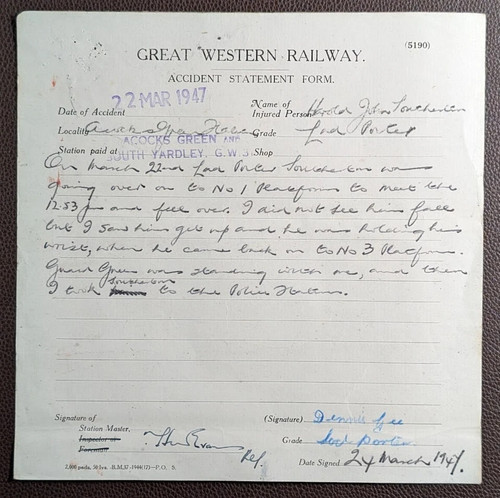 (5190)
GREAT WESTERN RAILWAY.
ACCIDENT STATEMENT FORM.
Date of Accident 22 MAR 1947 Name of Injured Person Harold John
Locality Acocks Green Station Grade Lad Porter
Station paid at ACOCKS GREEN AND SOUTH YARDLEY, G.W.R. Shop
On March 22nd Lad Porter was
going over on to No 1 Platform to meet the
12.53 pm and fell over. I did not see him fall
but I saw him get up and he was holding his
wrist, when he came back on to No 3 Platform.
Guard Green was standing with me, and then
I took to the Police Station.
Signature of
Station Master,
Inspector or
Foreman
(Signature) Dennis Gee
Grade Lad Porter
Date Signed 24 March 1947.
Ref.